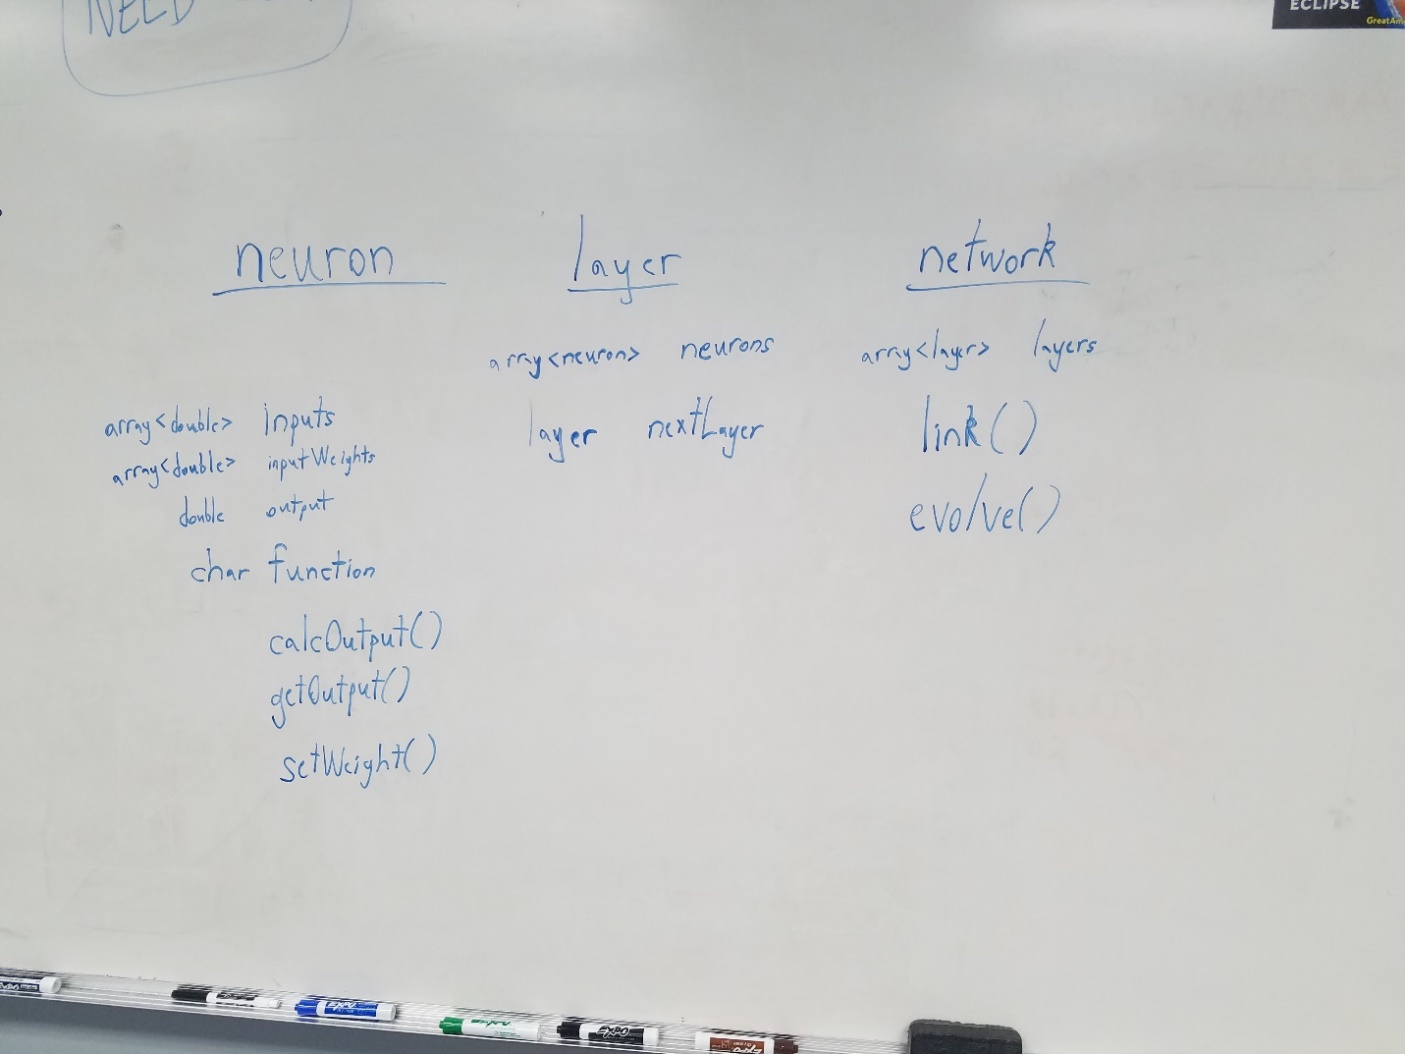 NEED
ECLIPSE
neuron
array<double> inputs
array<double> inputWeights
double output
char function
calcOutput()
getOutput()
setWeight()
layer
array<neuron> neurons
layer nextLayer
network
array<layer> layers
link()
evolve()
EXPO
EXPO
Expo